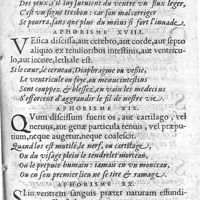 Des yeux, s'il luy survient du ventre un flux leger,
C'est un signe tresbon : car son mal corriger
Se pourra, sans que plus du moins si fort l'inunde
APHORISME XVIII.
Vesica discissa, aut cerebro, aut corde, aut septo
aliquo ex tenuioribus intestinis, aut ventricu-
lo, aut iecore, lethale est.
Si le cœur, le cerueau, Diaphragme ou vesie,
Le ventricule ou foye, ou menus intestins
Sont couppez & blessez, en vain les medecins
S'efforcent d'aggrandir le fil de nostre vie.
APHORISME XIX.
QVum discissum fuerit os, aut cartilago, vel
neruus, aut genæ particula tenuis, vel præpu-
tium, neque augetur, neque coalescit.
Quand l'os est mutilé, le nerf, ou cartilage,
Ou du visage plein le tendrelet morceau,
Ou le prepuce humain : iamais en un monceau,
Ou en son premier lieu ne se tire & ramage.
APHORISME XX.
SI in ventrem sanguis præter naturam effundi-